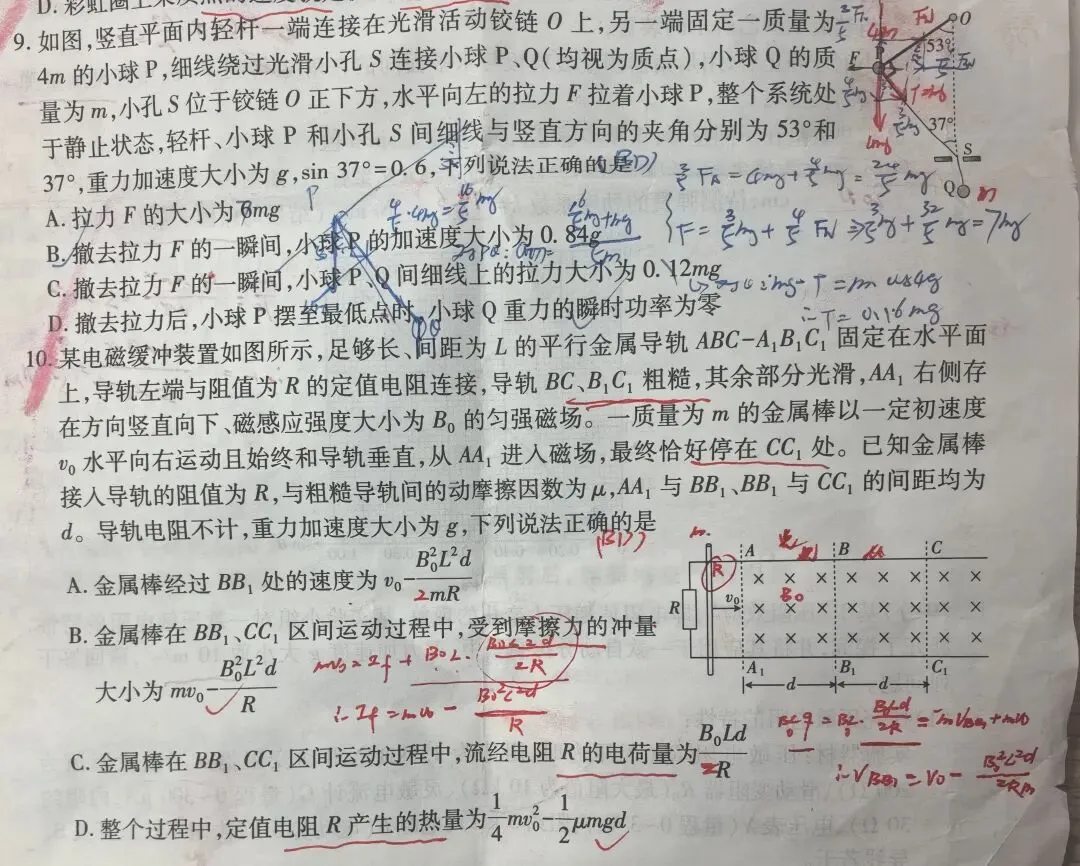 9. 如图,竖直平面内轻杆一端连接在光滑活动铰链 O 上,另一端固定一质量为
4m 的小球P,细线绕过光滑小孔 S 连接小球 P、Q(均视为质点),小球 Q 的质
量为 m,小孔 S 位于铰链 O 正下方,水平向左的拉力 F 拉着小球 P,整个系统处
于静止状态,轻杆、小球 P 和小孔 S 间细线与竖直方向的夹角分别为 53°和
37°,重力加速度大小为 g,sin 37°=0.6,下列说法正确的是
A. 拉力 F 的大小为 6mg
B. 撤去拉力 F 的一瞬间,小球 P 的加速度大小为 0.84g
C. 撤去拉力 F 的一瞬间,小球 P、Q 间细线上的拉力大小为 0.12mg
D. 撤去拉力后,小球 P 摆至最低点时,小球 Q 重力的瞬时功率为零
O
53°
F
P
37°
S
Q
m
4mg
3/5 F_N = 4mg + 4/5 mg = 24/5 mg
F = 3/5 mg + 4/5 F_N ⇒ 3/5 mg + 32/5 mg = 7mg
4/5 · 4mg = 16/5 mg
T = m 0.84g
∴ T = 0.16mg
10. 某电磁缓冲装置如图所示,足够长、间距为 L 的平行金属导轨 ABC-A₁B₁C₁ 固定在水平面
上,导轨左端与阻值为 R 的定值电阻连接,导轨 BC、B₁C₁ 粗糙,其余部分光滑,AA₁ 右侧存
在方向竖直向下、磁感应强度大小为 B₀ 的匀强磁场。一质量为 m 的金属棒以一定初速度
v₀ 水平向右运动且始终和导轨垂直,从 AA₁ 进入磁场,最终恰好停在 CC₁ 处。已知金属棒
接入导轨的阻值为 R,与粗糙导轨间的动摩擦因数为 μ,AA₁ 与 BB₁、BB₁ 与 CC₁ 的间距均为
d。导轨电阻不计,重力加速度大小为 g,下列说法正确的是
(BD)
A. 金属棒经过 BB₁ 处的速度为 v₀-B₀²L²d/2mR
B. 金属棒在 BB₁、CC₁ 区间运动过程中,受到摩擦力的冲量
大小为 mv₀-B₀²L²d/R
mv₀ = I_f + B₀L · B₀L2d/2R
∴ I_f = mv₀ - B₀²L²d/R
C. 金属棒在 BB₁、CC₁ 区间运动过程中,流经电阻 R 的电荷量为 B₀Ld/2R
D. 整个过程中,定值电阻 R 产生的热量为 1/4 mv₀²-1/2 μmgd
m
A B C
R
R v₀ B₀
A₁ B₁ C₁
d d
B₀Lq = B₀L · B₀Ld/2R = -mV_BB₁ + mv₀
∴ V_BB₁ = V₀ - B₀²L²d/2Rm